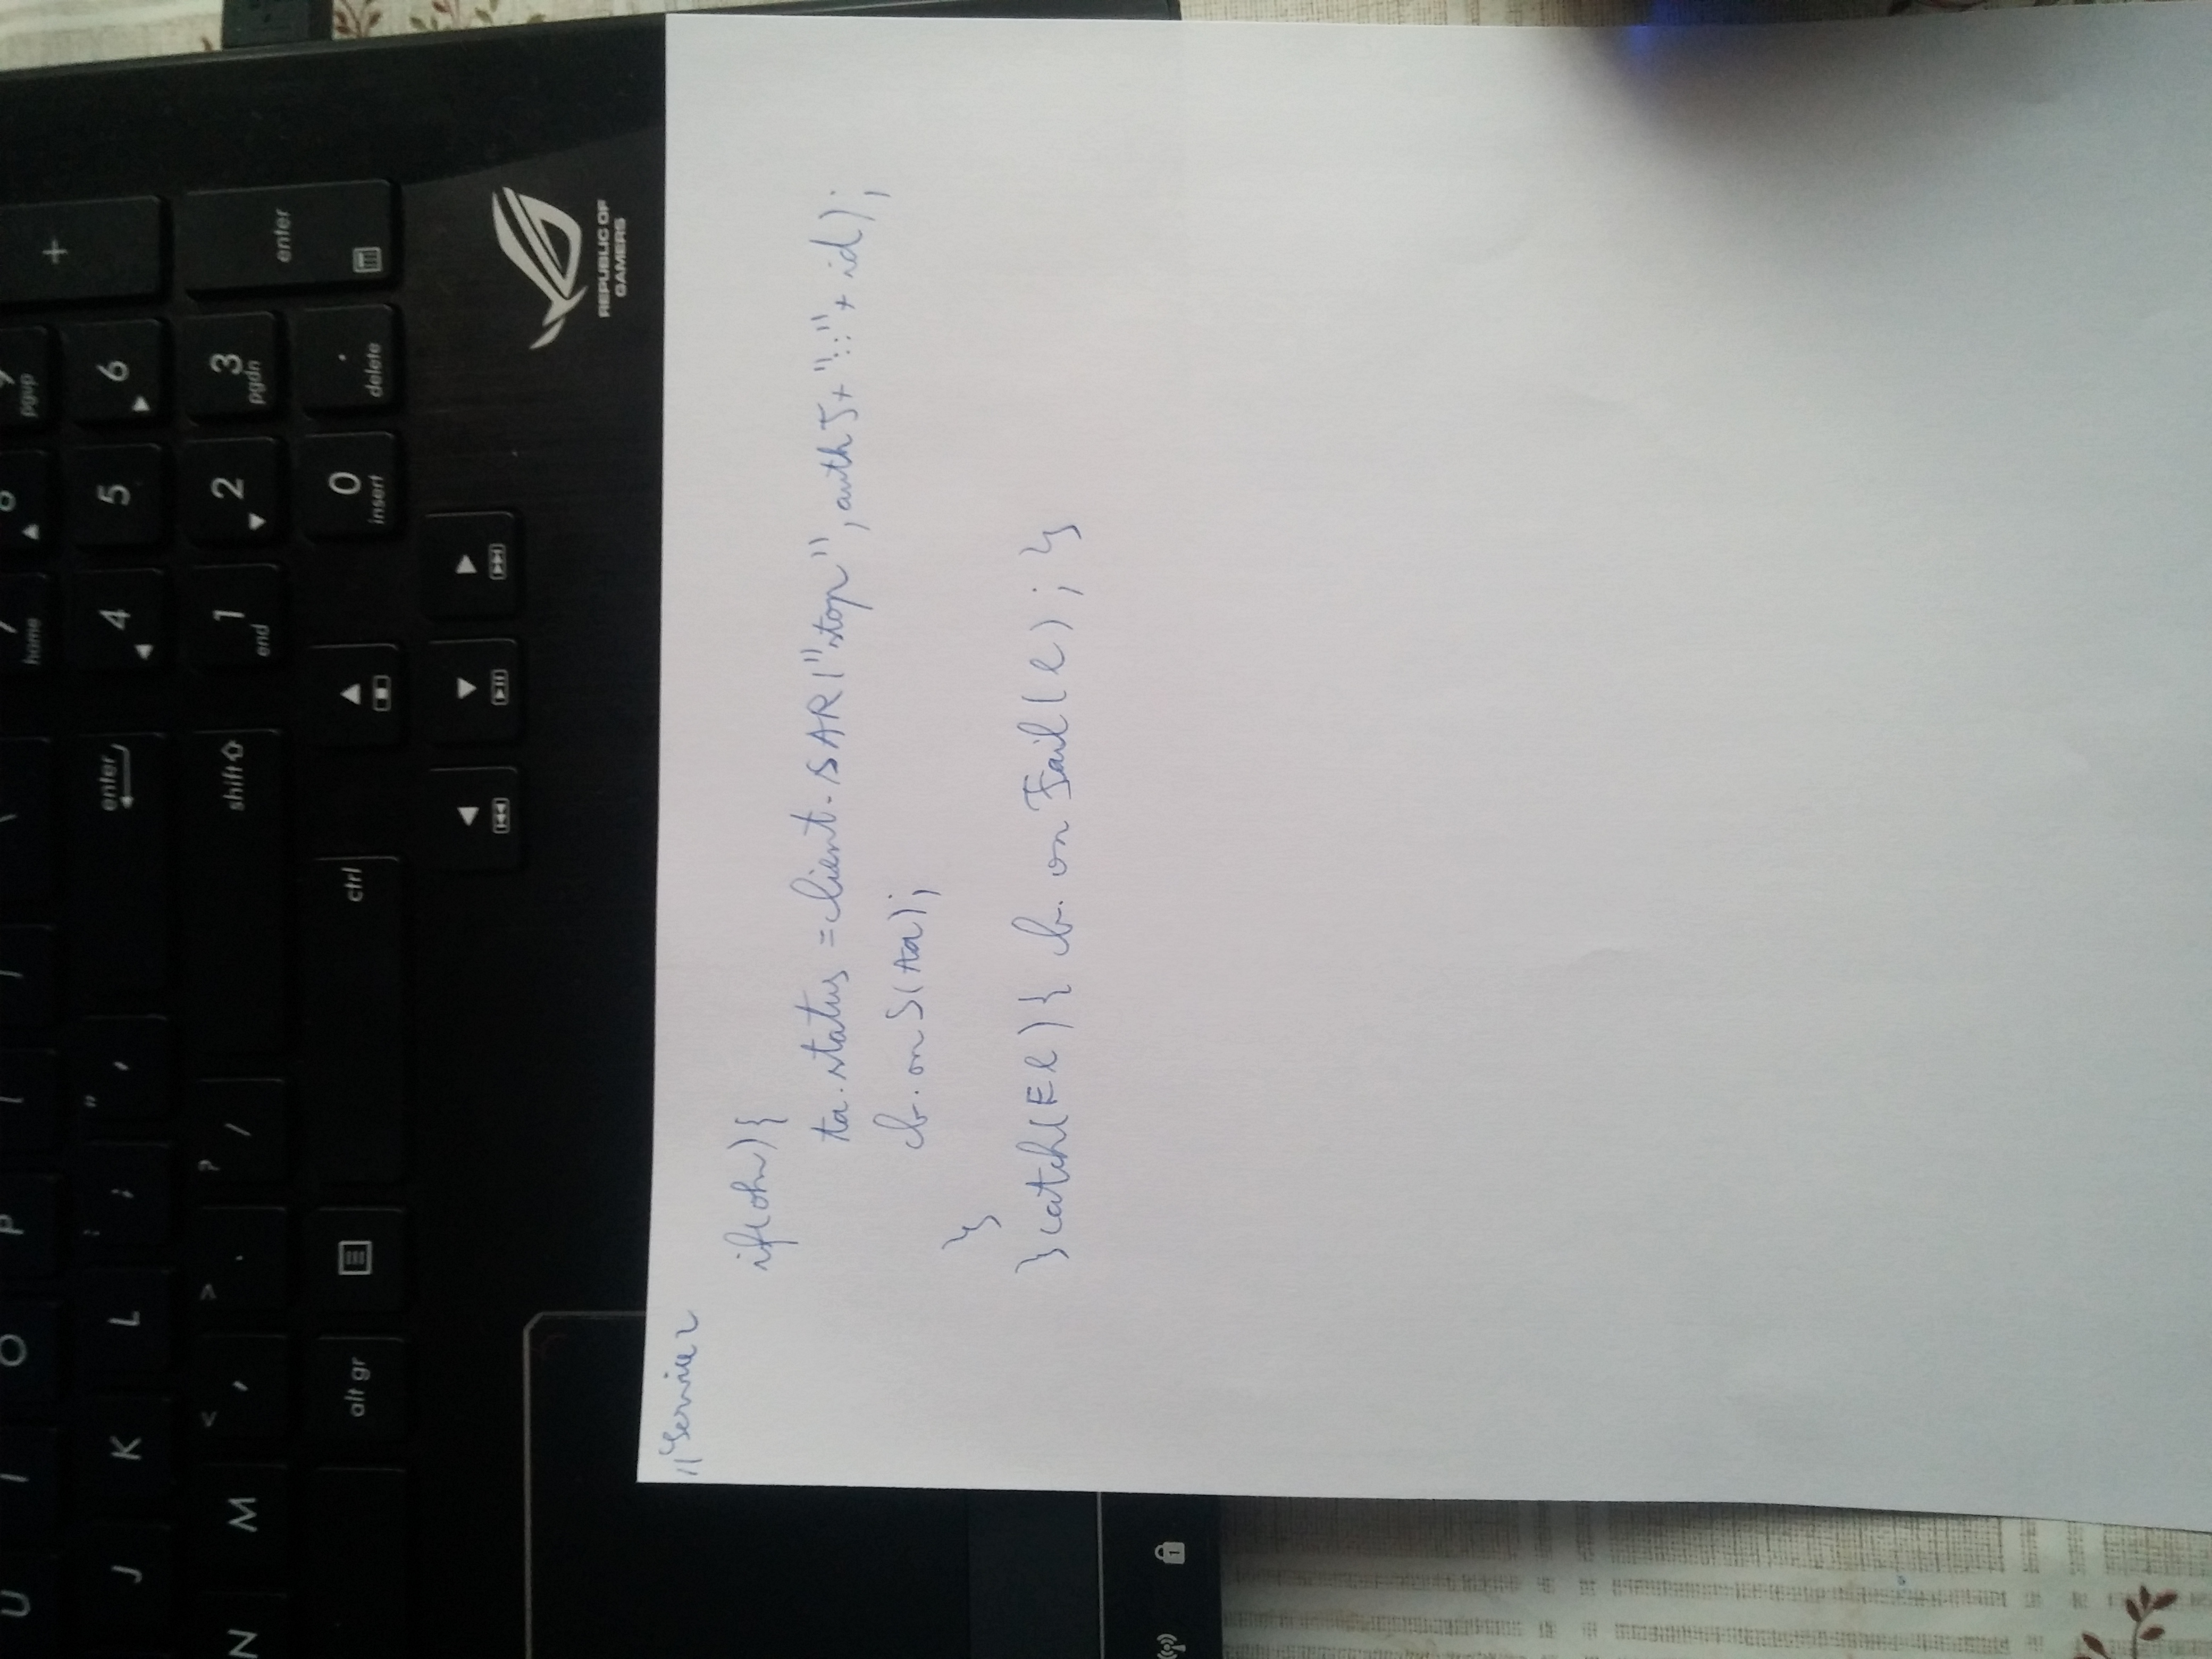 U I O P
home
pgup
+
J K L : ; " ' enter 4 5 6
N M < , > . ? / shift 1 end 2 3 pgdn enter
alt gr ctrl 0 insert . delete
REPUBLIC OF
GAMERS
//Service2
if(oh){
ta.status = client.SAR("stop", authJ+"::"+id);
cb.onS(ta);
}
}catch(E e){ cb.onFail(e); }